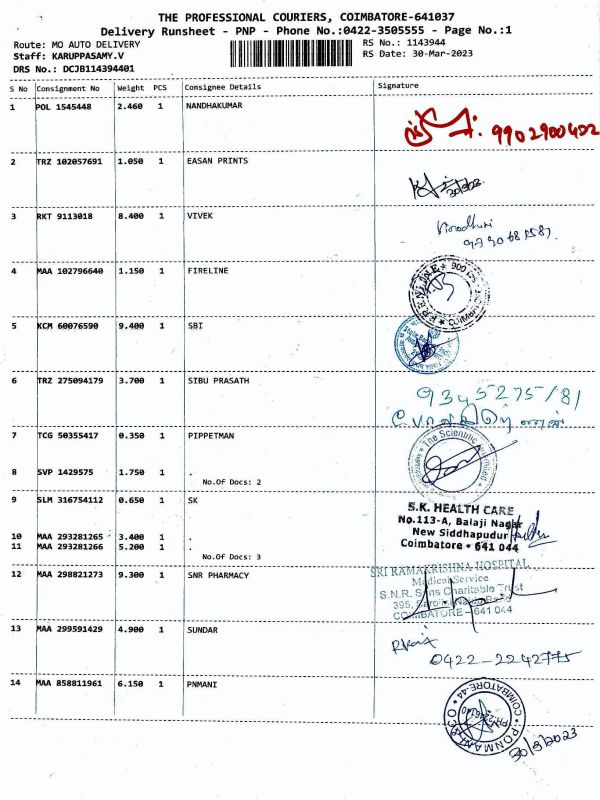 THE PROFESSIONAL COURIERS, COIMBATORE-641037
Delivery Runsheet - PNP - Phone No.:0422-3505555 - Page No.:1
Route: MO AUTO DELIVERY
RS No.: 1143944
Staff: KARUPPASAMY.V
RS Date: 30-Mar-2023
DRS No.: DCJB114394401
S No Consignment No Weight PCS Consignee Details Signature
1 POL 1545448 2.460 1 NANDHAKUMAR
9902900402
2 TRZ 102057691 1.050 1 EASAN PRINTS
3 RKT 9113018 8.400 1 VIVEK
4 MAA 102796640 1.150 1 FIRELINE
FIRELINE
5 KCM 60076590 9.400 1 SBI
6 TRZ 275094179 3.700 1 SIBU PRASATH
7 TCG 50355417 0.350 1 PIPPETMAN
The Scientific
8 SVP 1429575 1.750 1 .
No.Of Docs: 2
9 SLM 316754112 0.650 1 SK
S.K. HEALTH CARE
No.113-A, Balaji Nagar
New Siddhapudur
Coimbatore • 641 044
10 MAA 293281265 3.400 1 .
11 MAA 293281266 5.200 1 .
No.Of Docs: 3
12 MAA 298821273 9.300 1 SNR PHARMACY
SRI RAMAKRISHNA HOSPITAL
Medical Service
S.N.R. Sons Charitable Trust
395,
COIMBATORE - 641 044
13 MAA 299591429 4.900 1 SUNDAR
0422-2242775
14 MAA 858811961 6.150 1 PNMANI
COIMBATORE-44
30/3/2023